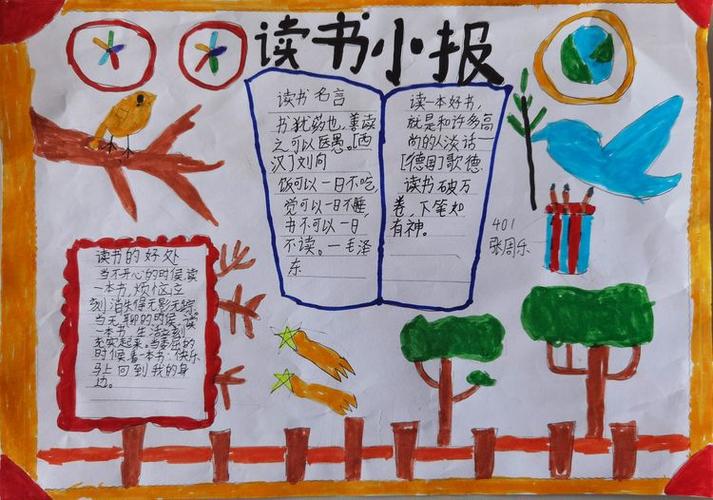 读书小报
读书名言
书犹药也，善读
之可以医愚。[西
汉]刘向
饭可以一日不吃，
觉可以一日不睡，
书不可以一日
不读。—毛泽
东
读一本好书，
就是和许多高
尚的人谈话—
[德国]歌德
读书破万
卷，下笔如
有神。
401
张周乐
读书的好处
当不开心的时候，读
一本书，烦恼立
刻消失得无影无踪。
当无聊的时候，读
一本书，生活立刻
充实起来。当委屈的
时候看一本书，快乐
马上回到我的身
边。